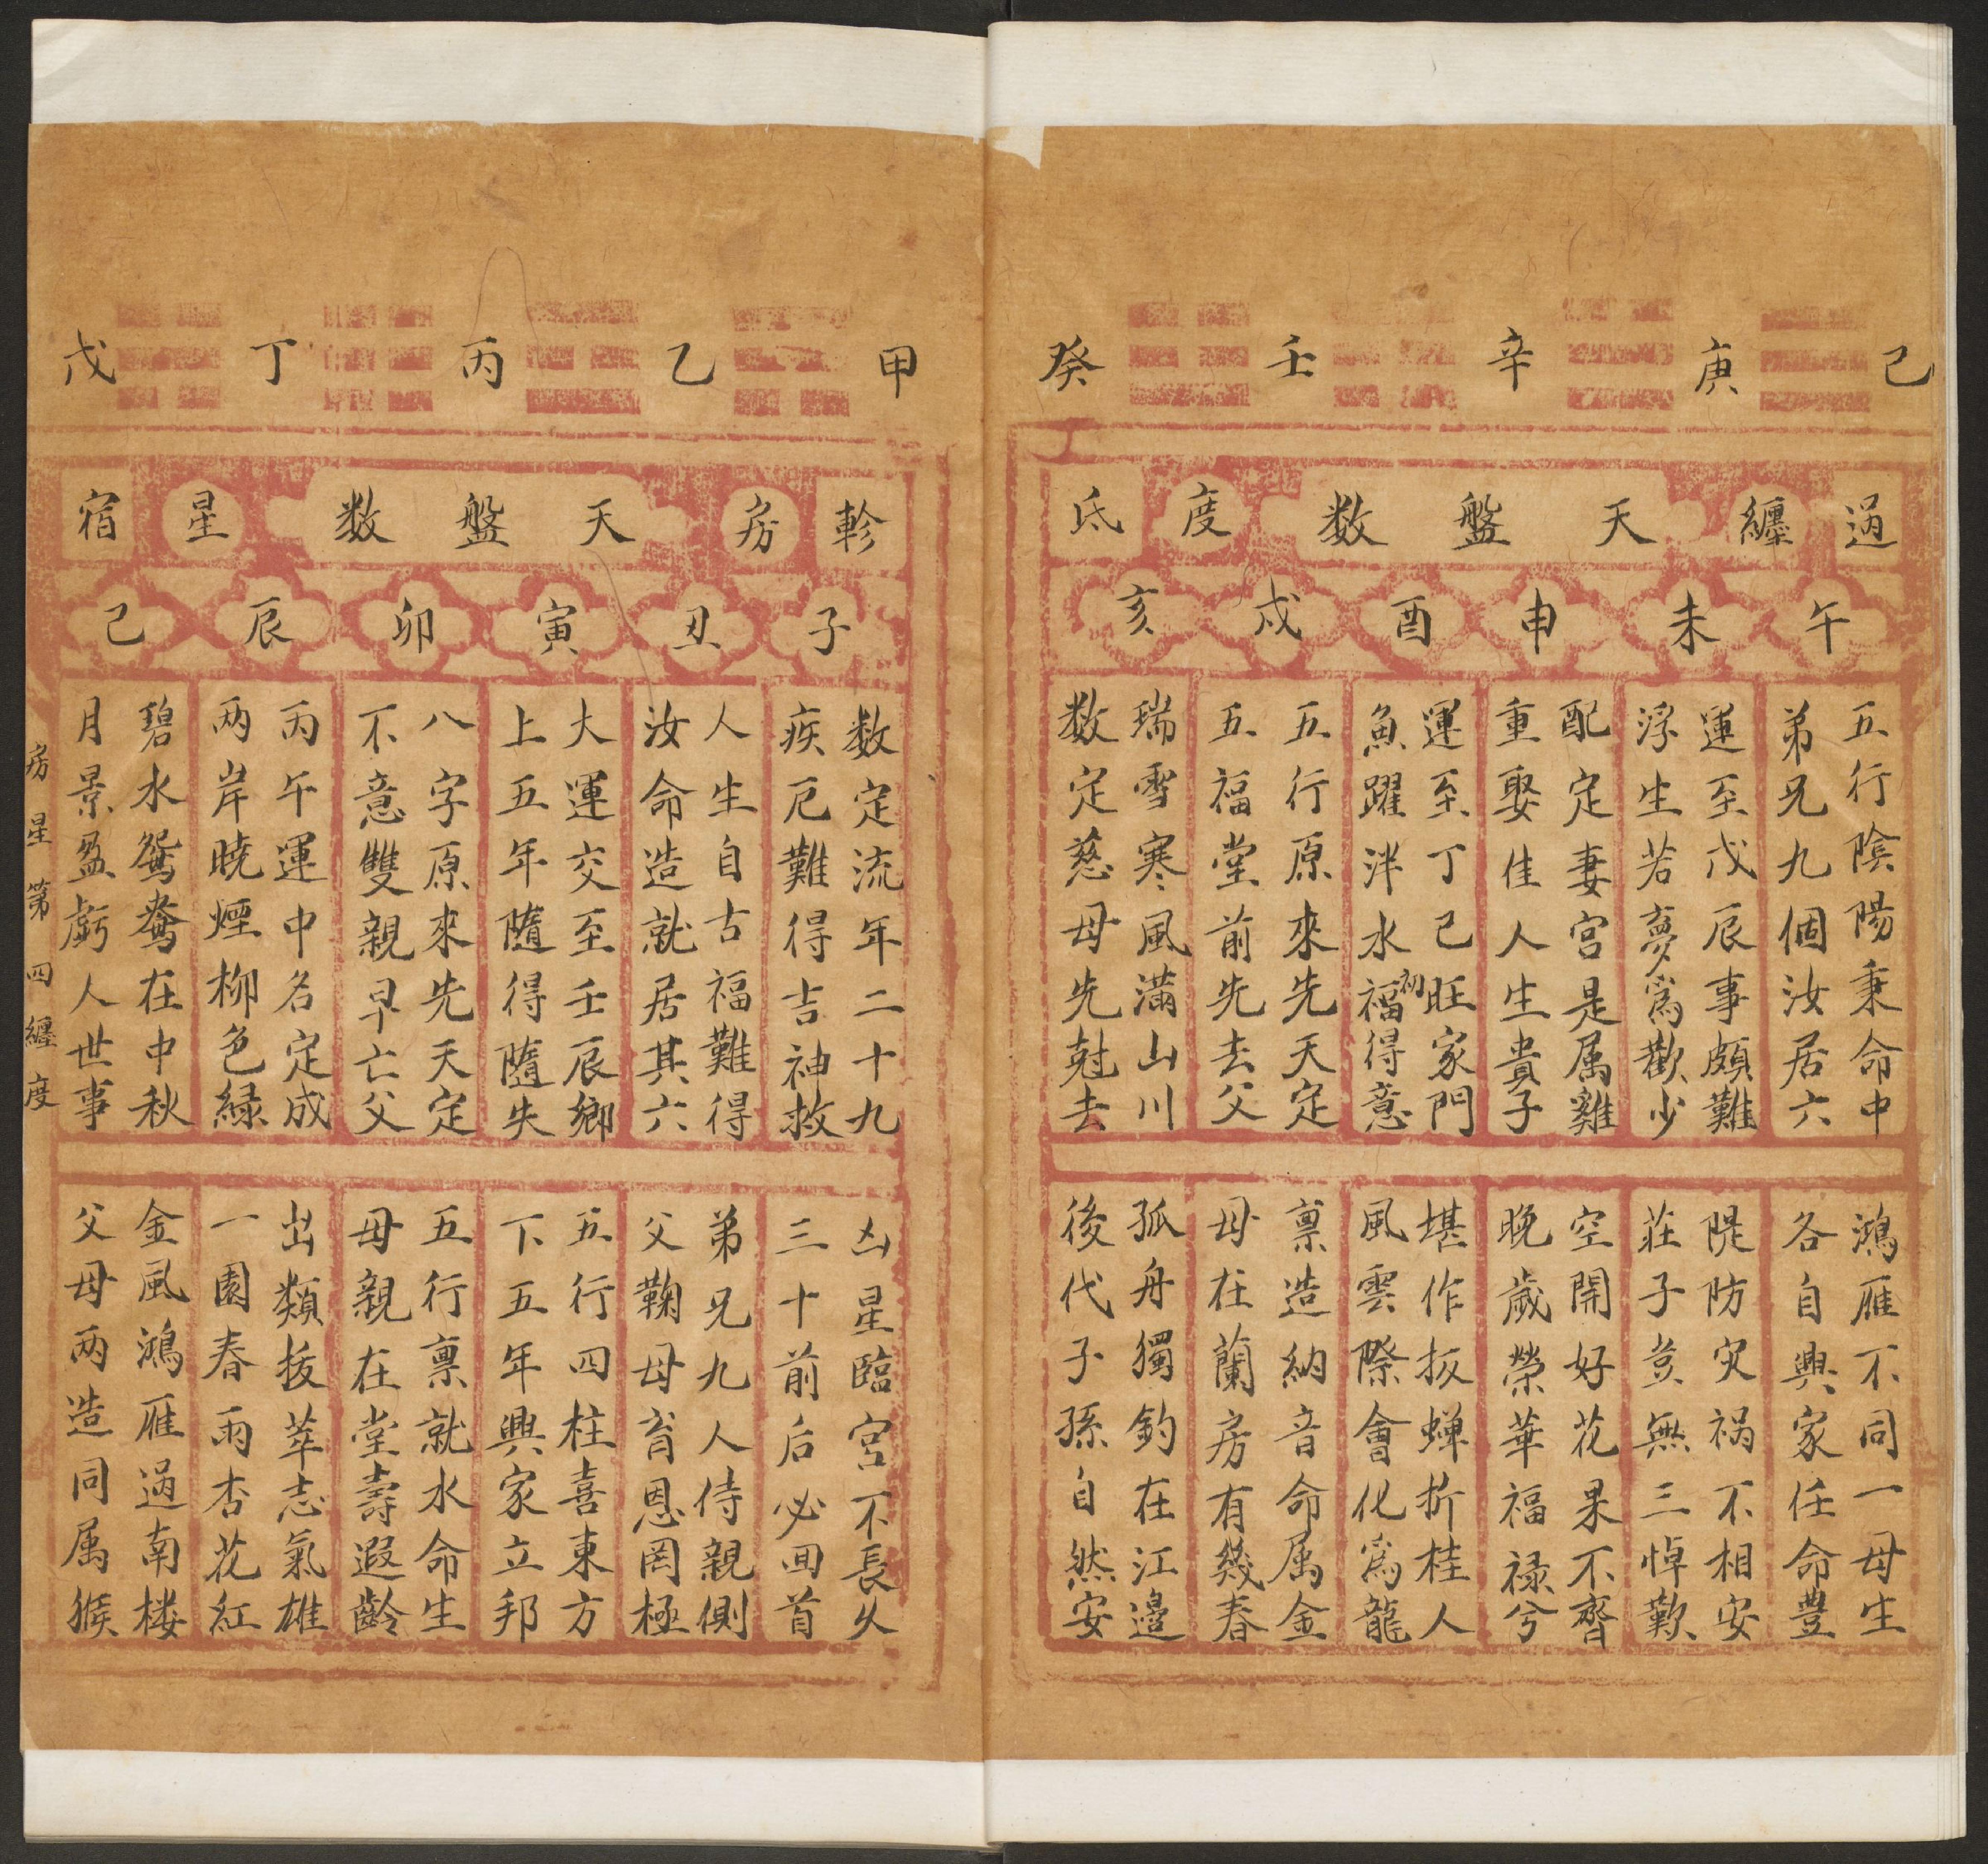 己庚辛壬癸
過纏天盤数度氐
午未申酉戌亥
五行陰陽秉命中
弟兄九個汝居六
鴻雁不同一母生
各自興家任命豊
運至戊辰事頗難
浮生若夢爲歡少
隄防灾禍不相安
莊子豈無三悼歎
配定妻宮是属雞
重娶佳人生貴子
空開好花果不齊
晚歲榮華福禄兮
運至丁己旺家門
魚躍泮水福初得意
堪作扳蟬折桂人
風雲際會化爲龍
五行原來先天定
五福堂前先去父
禀造納音命属金
母在蘭房有幾春
瑞雪寒風滿山川
数定慈母先尅去
孤舟獨釣在江邉
後代子孫自然安
甲乙丙丁戊
軫房天盤数星宿
子丑寅卯辰己
数定流年二十九
疾厄難得吉神救
凶星臨宮不長久
三十前后必回首
人生自古福難得
汝命造就居其六
弟兄九人侍親側
父鞠母育恩罔極
大運交至壬辰鄉
上五年隨得隨失
五行四柱喜東方
下五年興家立邦
八字原來先天定
不意雙親早亡父
五行禀就水命生
母親在堂壽遐齡
丙午運中名定成
兩岸曉煙柳色緑
出類拔萃志氣雄
一園春雨杏花紅
碧水鴛鴦在中秋
月景盈虧人世事
金風鴻雁過南楼
父母兩造同属猴
房星第四纏度